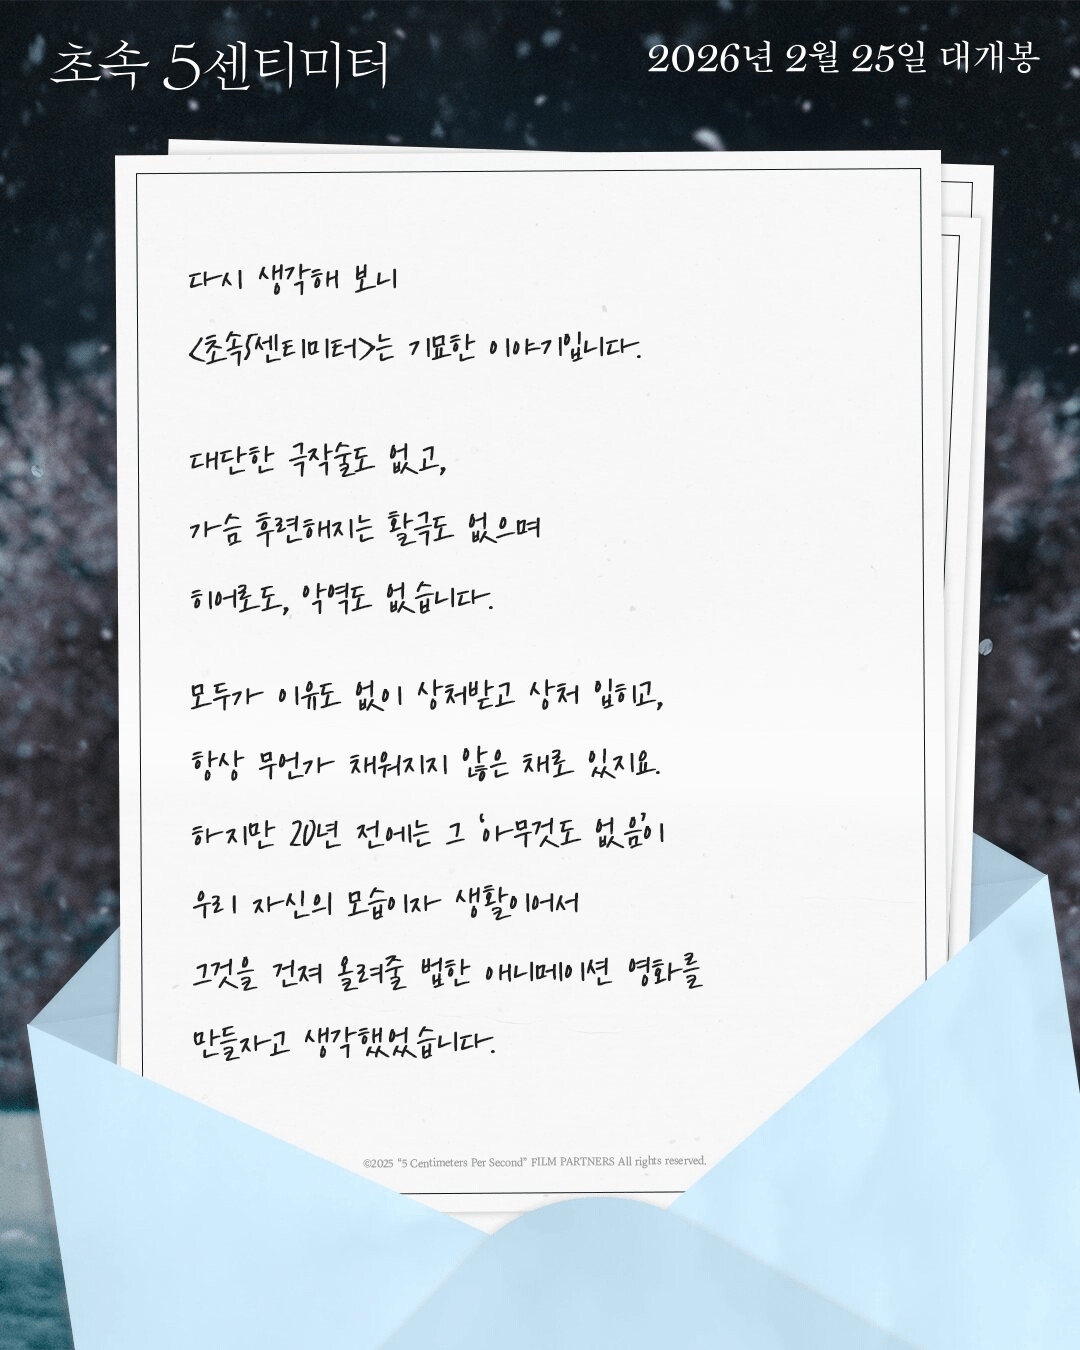 초속 5센티미터
2026년 2월 25일 대개봉
다시 생각해 보니
<초속5센티미터>는 기묘한 이야기입니다.
대단한 극작술도 없고,
가슴 후련해지는 활극도 없으며
히어로도, 악역도 없습니다.
모두가 이유도 없이 상처받고 상처 입히고,
항상 무언가 채워지지 않은 채로 있지요.
하지만 20년 전에는 그 '아무것도 없음'이
우리 자신의 모습이자 생활이어서
그것을 건져 올려줄 법한 애니메이션 영화를
만들자고 생각했었습니다.
©2025 “5 Centimeters Per Second” FILM PARTNERS All rights reserved.